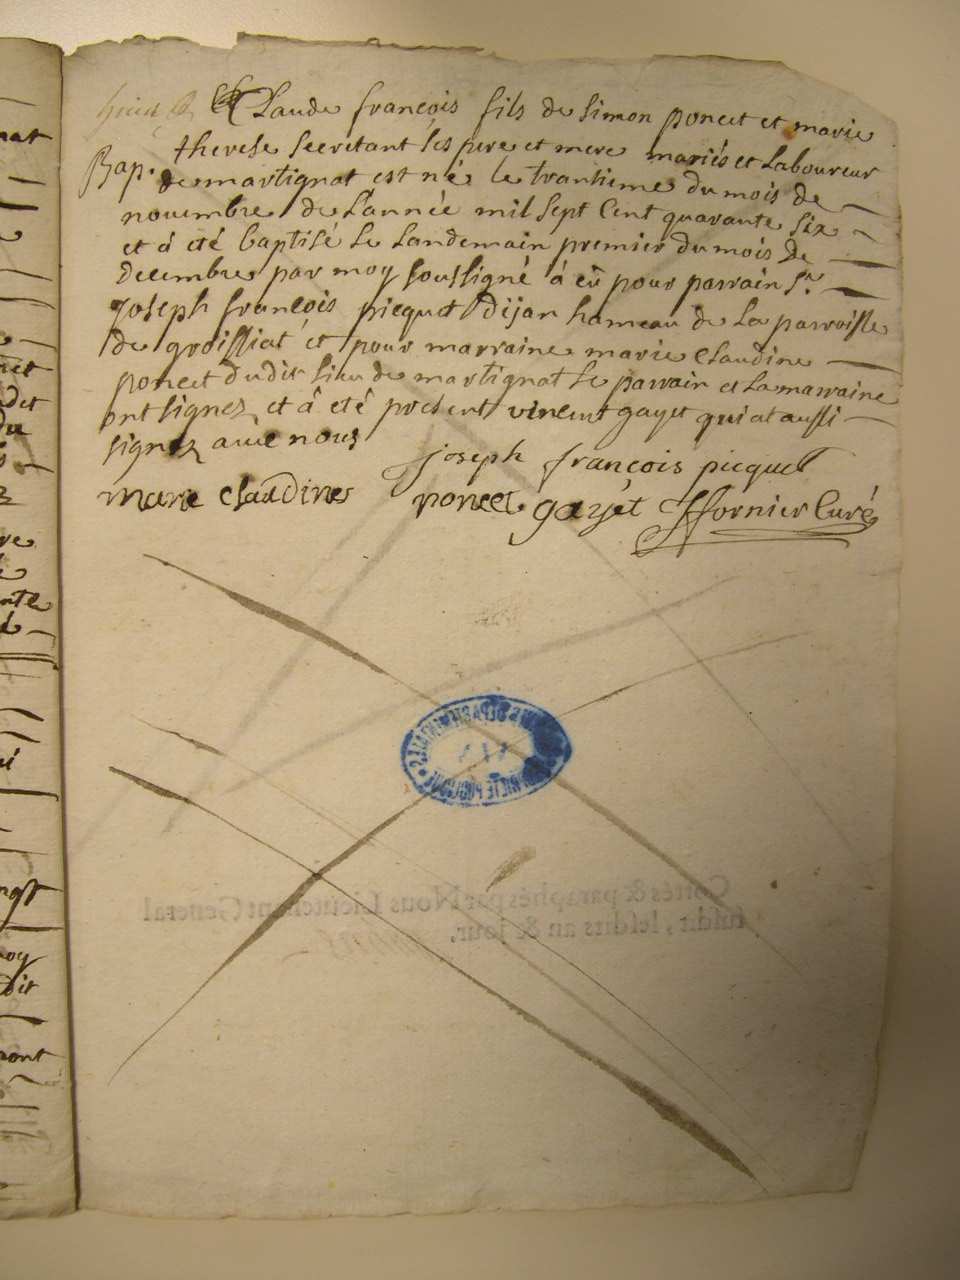 Claude françois fils de simon poncet et marie
Bap. therese secretant ses pere et mere mariés et Laboureur
de martignat est né le trantieme du mois de
nouembre de L'année mil sept Cent quarante six
et á eté baptisé le Landemain premier du mois de
decembre par moy soussigné á eû pour parrain Sr.
Joseph françois picquet dijan hameau de la parroisse
de groissiat et pour marraine marie claudine
poncet dudit lieu de martignat le parrain et la marraine
ont signez et á eté present vincent gayet qui at aussi
signez auec nous
joseph françois picquet
marie claudine poncet gayet fornier Curé
Cottés & paraphés par Nous Lieutenant General
susdit, lesdits an & jour.